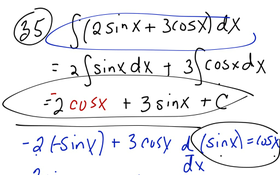 35 ∫(2 sinx + 3 cosx) dx
= 2∫sinx dx + 3∫cosx dx
= -2 cosx + 3 sinx + C
-2(-sinx) + 3 cosx d/dx (sinx) = cosx